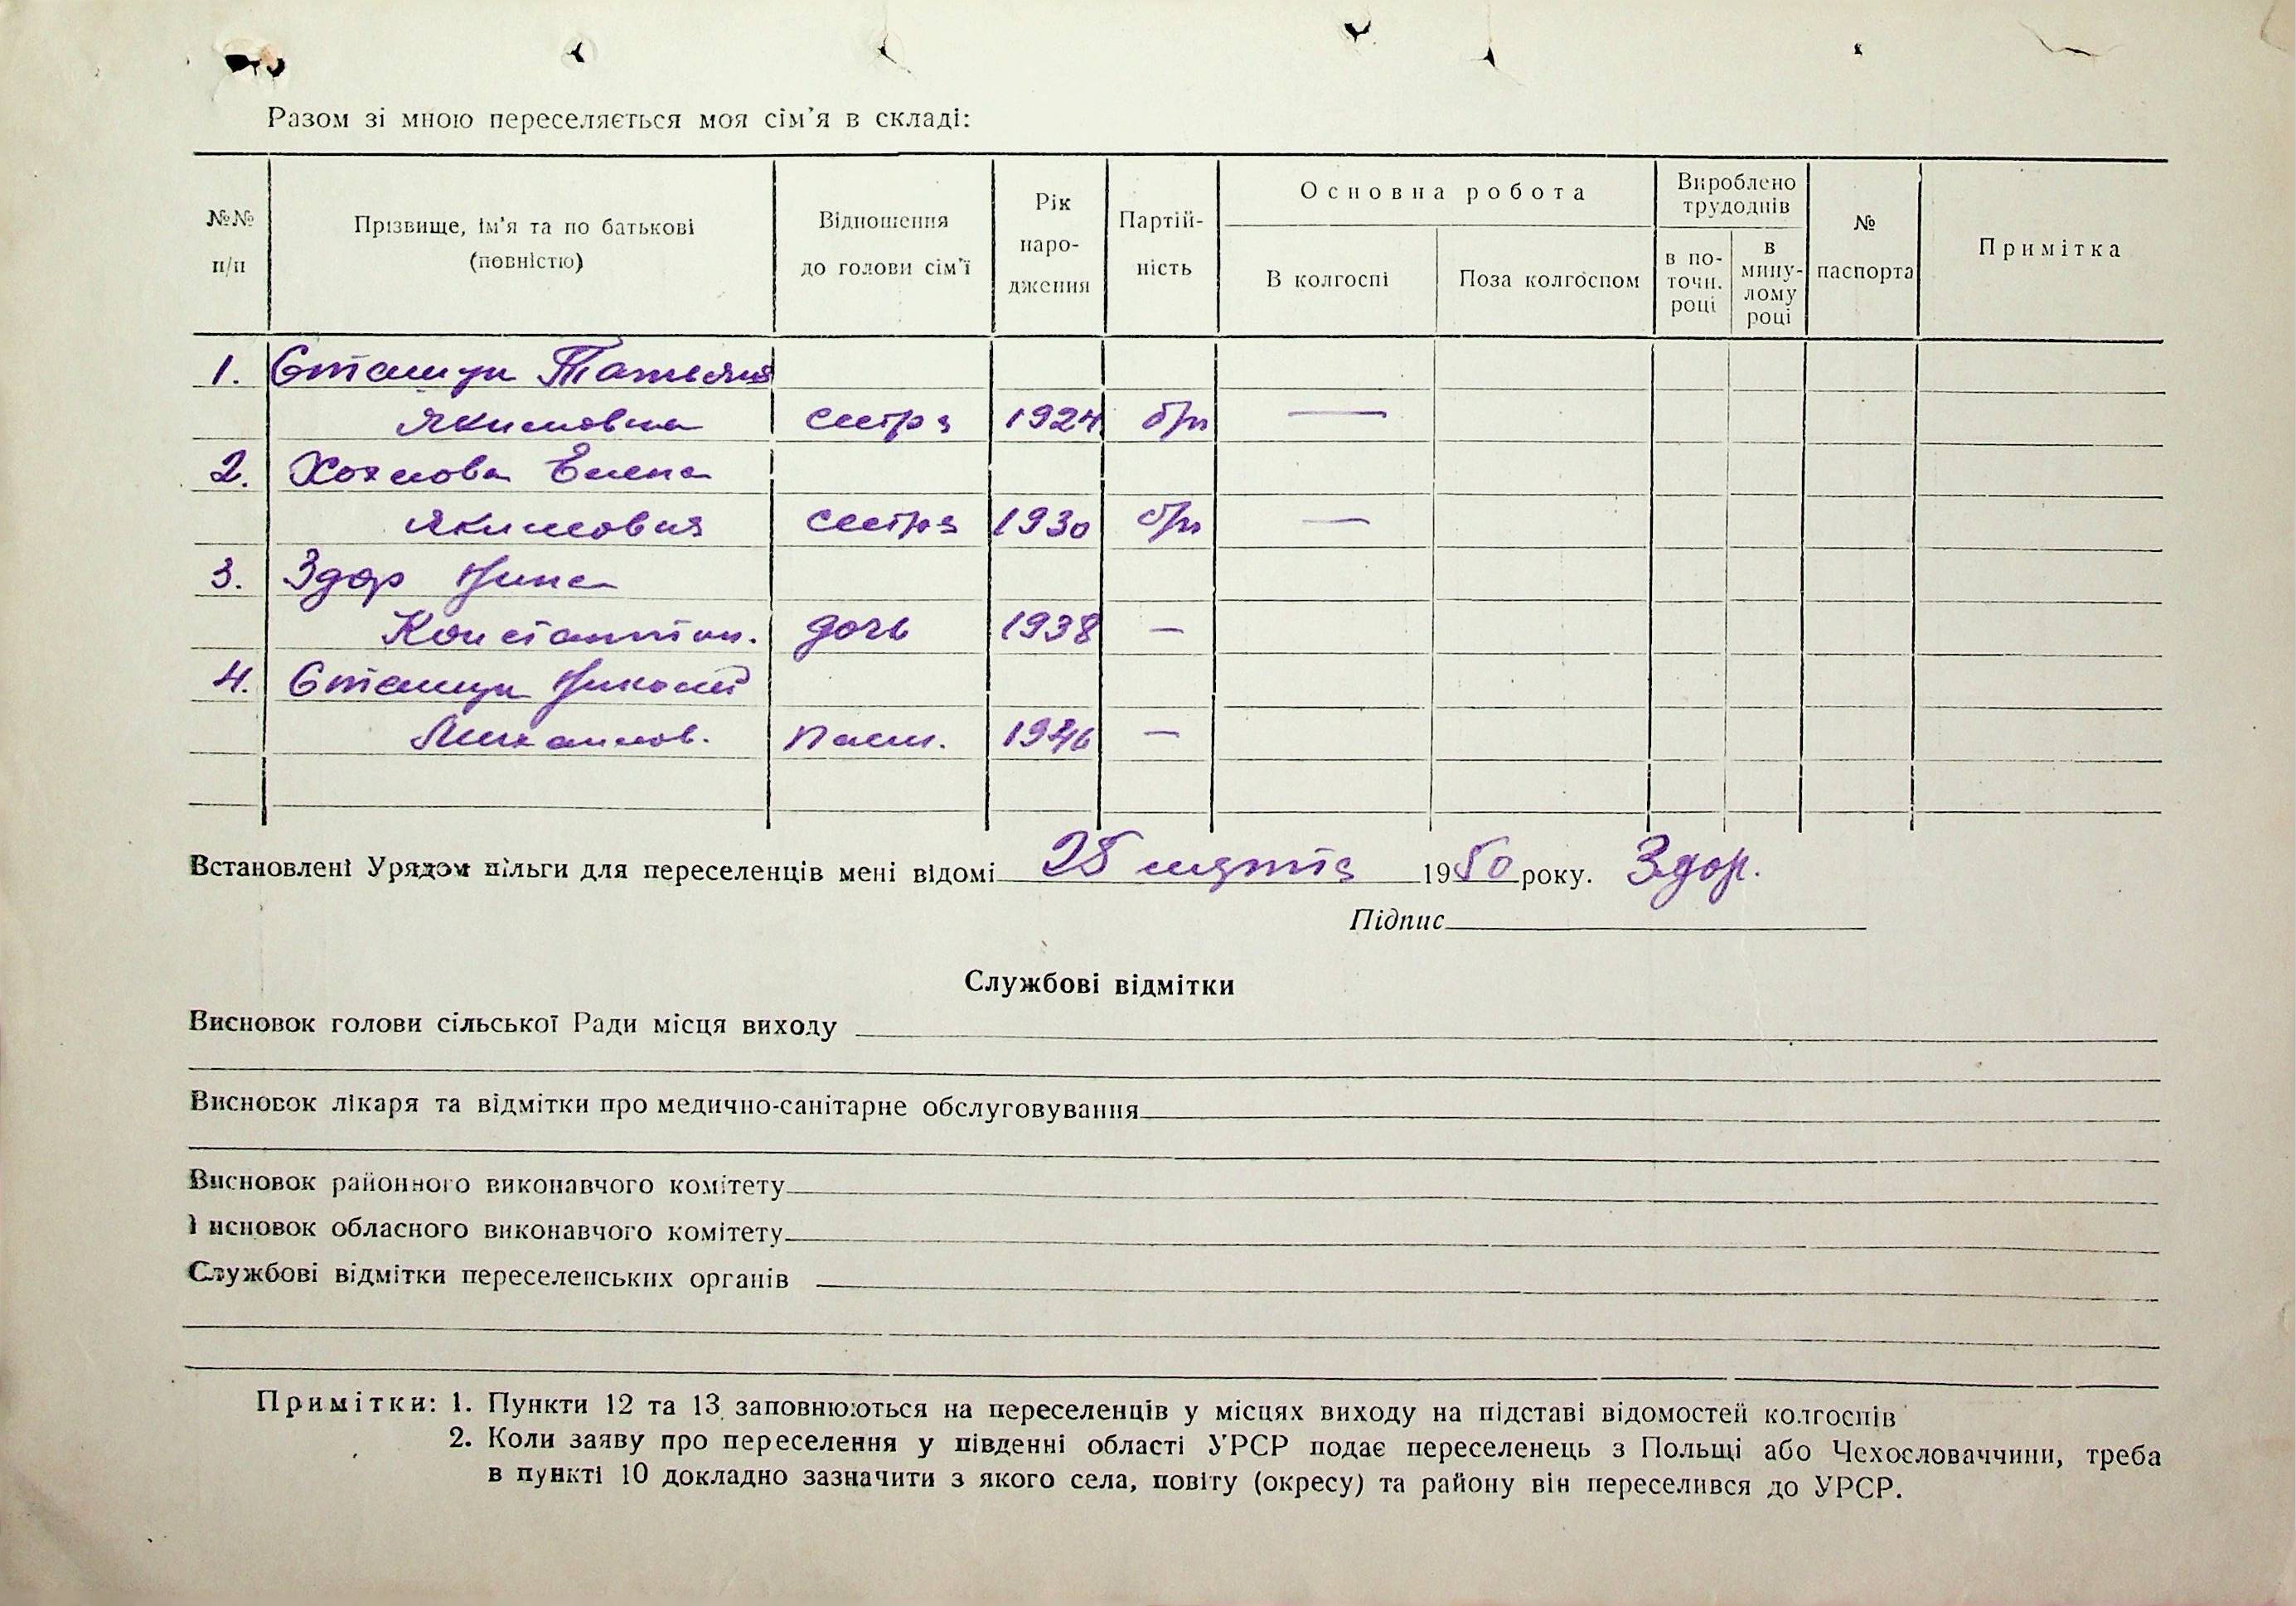 Разом зі мною переселяється моя сім'я в складі:
№№ п/п
Прізвище, ім'я та по батькові (повністю)
Відношення до голови сім'ї
Рік народження
Партійність
Основна робота
В колгоспі
Поза колгоспом
Вироблено трудоднів
в поточн. році
в минулому році
№ паспорта
Примітка
1. Татьяна
Якимовна сестра 1924 б/п —
2. Хохлова Елена
Якимовна сестра 1930 б/п —
3. Здор Нина
Константин. дочь 1938 —
4. Николай
Михайлов. плем. 1946 —
Встановлені Урядом пільги для переселенців мені відомі 25 марта 1950 року. Здор.
Підпис
Службові відмітки
Висновок голови сільської Ради місця виходу
Висновок лікаря та відмітки про медично-санітарне обслуговування
Висновок районного виконавчого комітету
Висновок обласного виконавчого комітету
Службові відмітки переселенських органів
Примітки: 1. Пункти 12 та 13 заповнюються на переселенців у місцях виходу на підставі відомостей колгоспів
2. Коли заяву про переселення у південні області УРСР подає переселенець з Польщі або Чехословаччини, треба
в пункті 10 докладно зазначити з якого села, повіту (окресу) та району він переселився до УРСР.